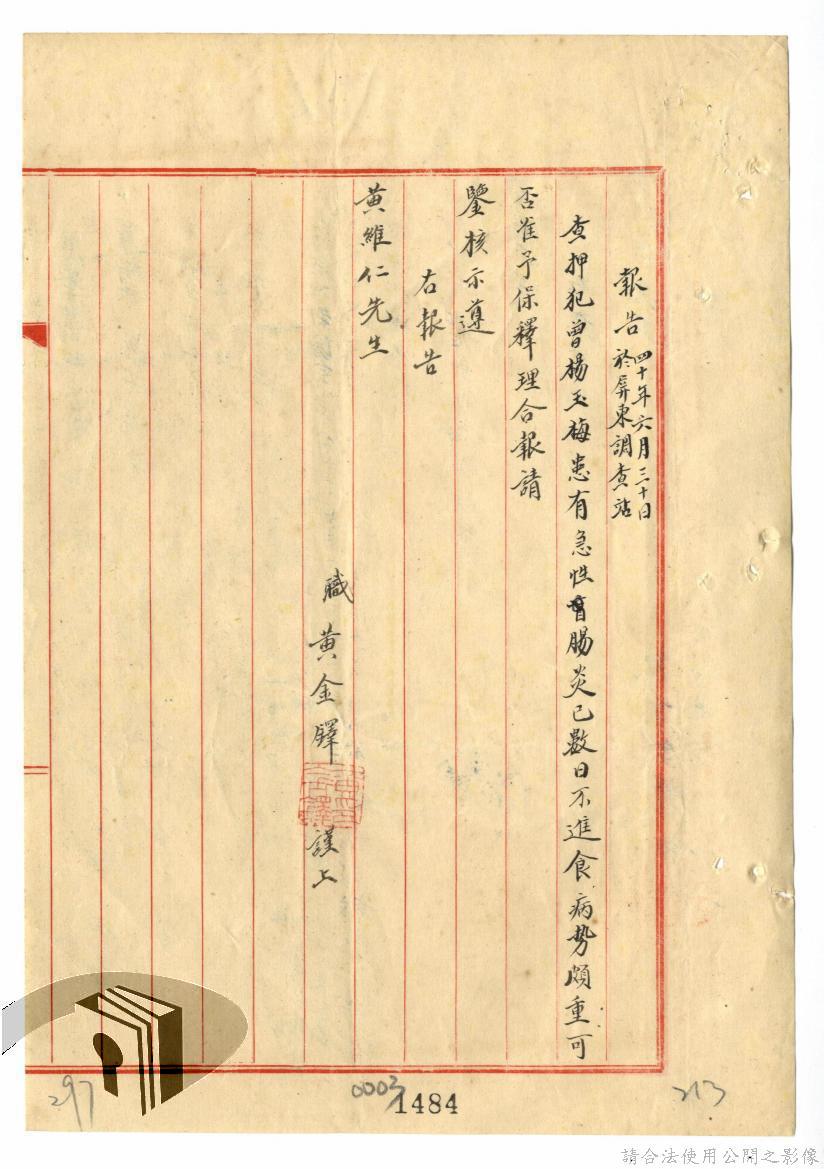 報告 四十年六月三十日
於屏東調查站
查押犯曾楊玉梅患有急性盲腸炎已數日不進食病勢頗重可
否准予保釋理合報請
鑒核示遵
右報告
黃維仁先生
職黃金鐸謹上
297
0003
1484
213
請合法使用公開之影像